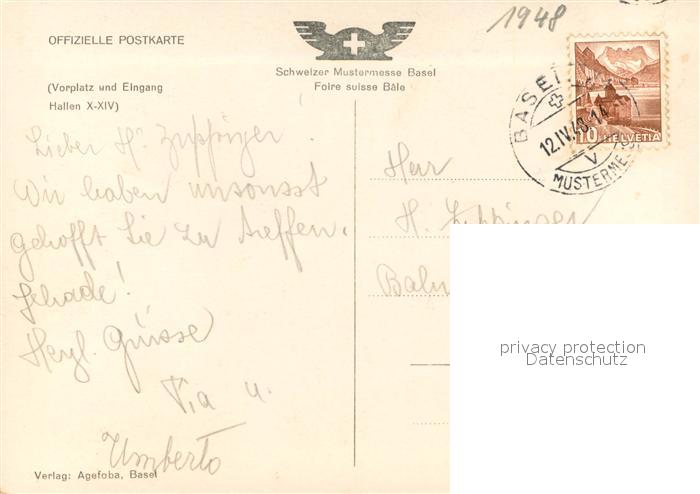 1948
OFFIZIELLE POSTKARTE
Schweizer Mustermesse Basel
Foire suisse Bâle
(Vorplatz und Eingang
Hallen X-XIV)
BASEL
12.IV.48-14
V
MUSTERME
10 HELVETIA
Lieber Hr Zuppinger!
Wir haben umsonst
gehofft Sie zu treffen.
Schade!
Herzl. Grüsse
Pia u.
Umberto
Herr
H. Zuppinger
Bahn
privacy protection
Datenschutz
Verlag: Agefoba, Basel